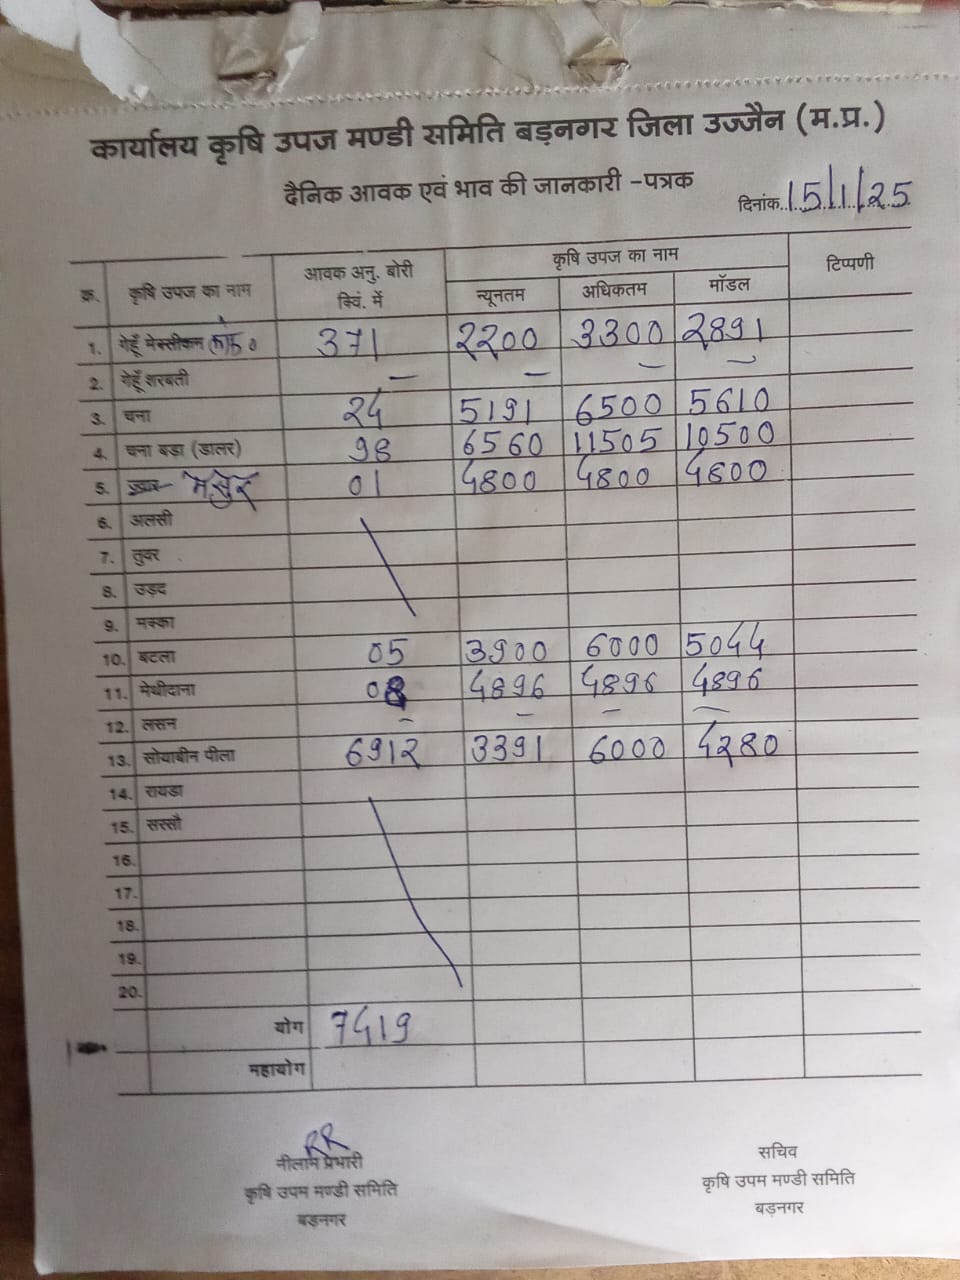 कार्यालय कृषि उपज मण्डी समिति बड़नगर जिला उज्जैन (म.प्र.)
दैनिक आवक एवं भाव की जानकारी -पत्रक
दिनांक 15/1/25
क्र. कृषि उपज का नाम आवक अनु. बोरी क्विं. में कृषि उपज का नाम टिप्पणी
न्यूनतम अधिकतम मॉडल
1. गेहूँ मेक्सीकन 371 2200 3300 2891
2. गेहूँ शरबती — — — —
3. चना 24 5191 6500 5610
4. चना बड़ा (डालर) 98 6560 11505 10500
5. मसुर 01 4800 4800 4800
6. अलसी
7. तुवर
8. उड़द
9. मक्का
10. बटला 05 3900 6000 5044
11. मेथीदाना 08 4896 4896 4896
12. लसन — — — —
13. सोयाबीन पीला 6912 3391 6000 4280
14. रायडा
15. सरसौ
16.
17.
18.
19.
20.
योग 7419
महायोग
RR
नीलाम प्रभारी
कृषि उपम मण्डी समिति
बड़नगर
सचिव
कृषि उपम मण्डी समिति
बड़नगर